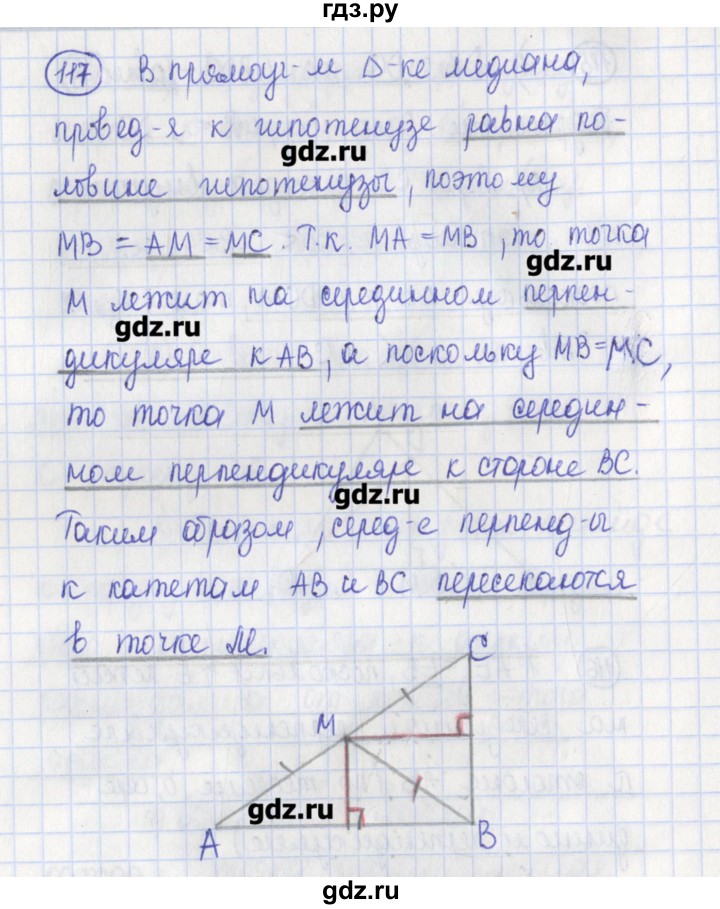 гдз.ру
117 В прямоуг-м Δ-ке медиана,
провед-я к гипотенузе равна по-
gdz.ru
ловине гипотенузы, поэтому
MB = AM = MC. Т.к. MA = MB, то точка
gdz.ru
M лежит на серединном перпен-
gdz.ru
дикуляре к AB, а поскольку MB = MC,
то точка M лежит на середин-
ном перпендикуляре к стороне BC.
gdz.ru
Таким образом, серед-е перпенд-ы
gdz.ru
к катетам AB и BC пересекаются
в точке M.
C
M
gdz.ru
A
B
gdz.ru